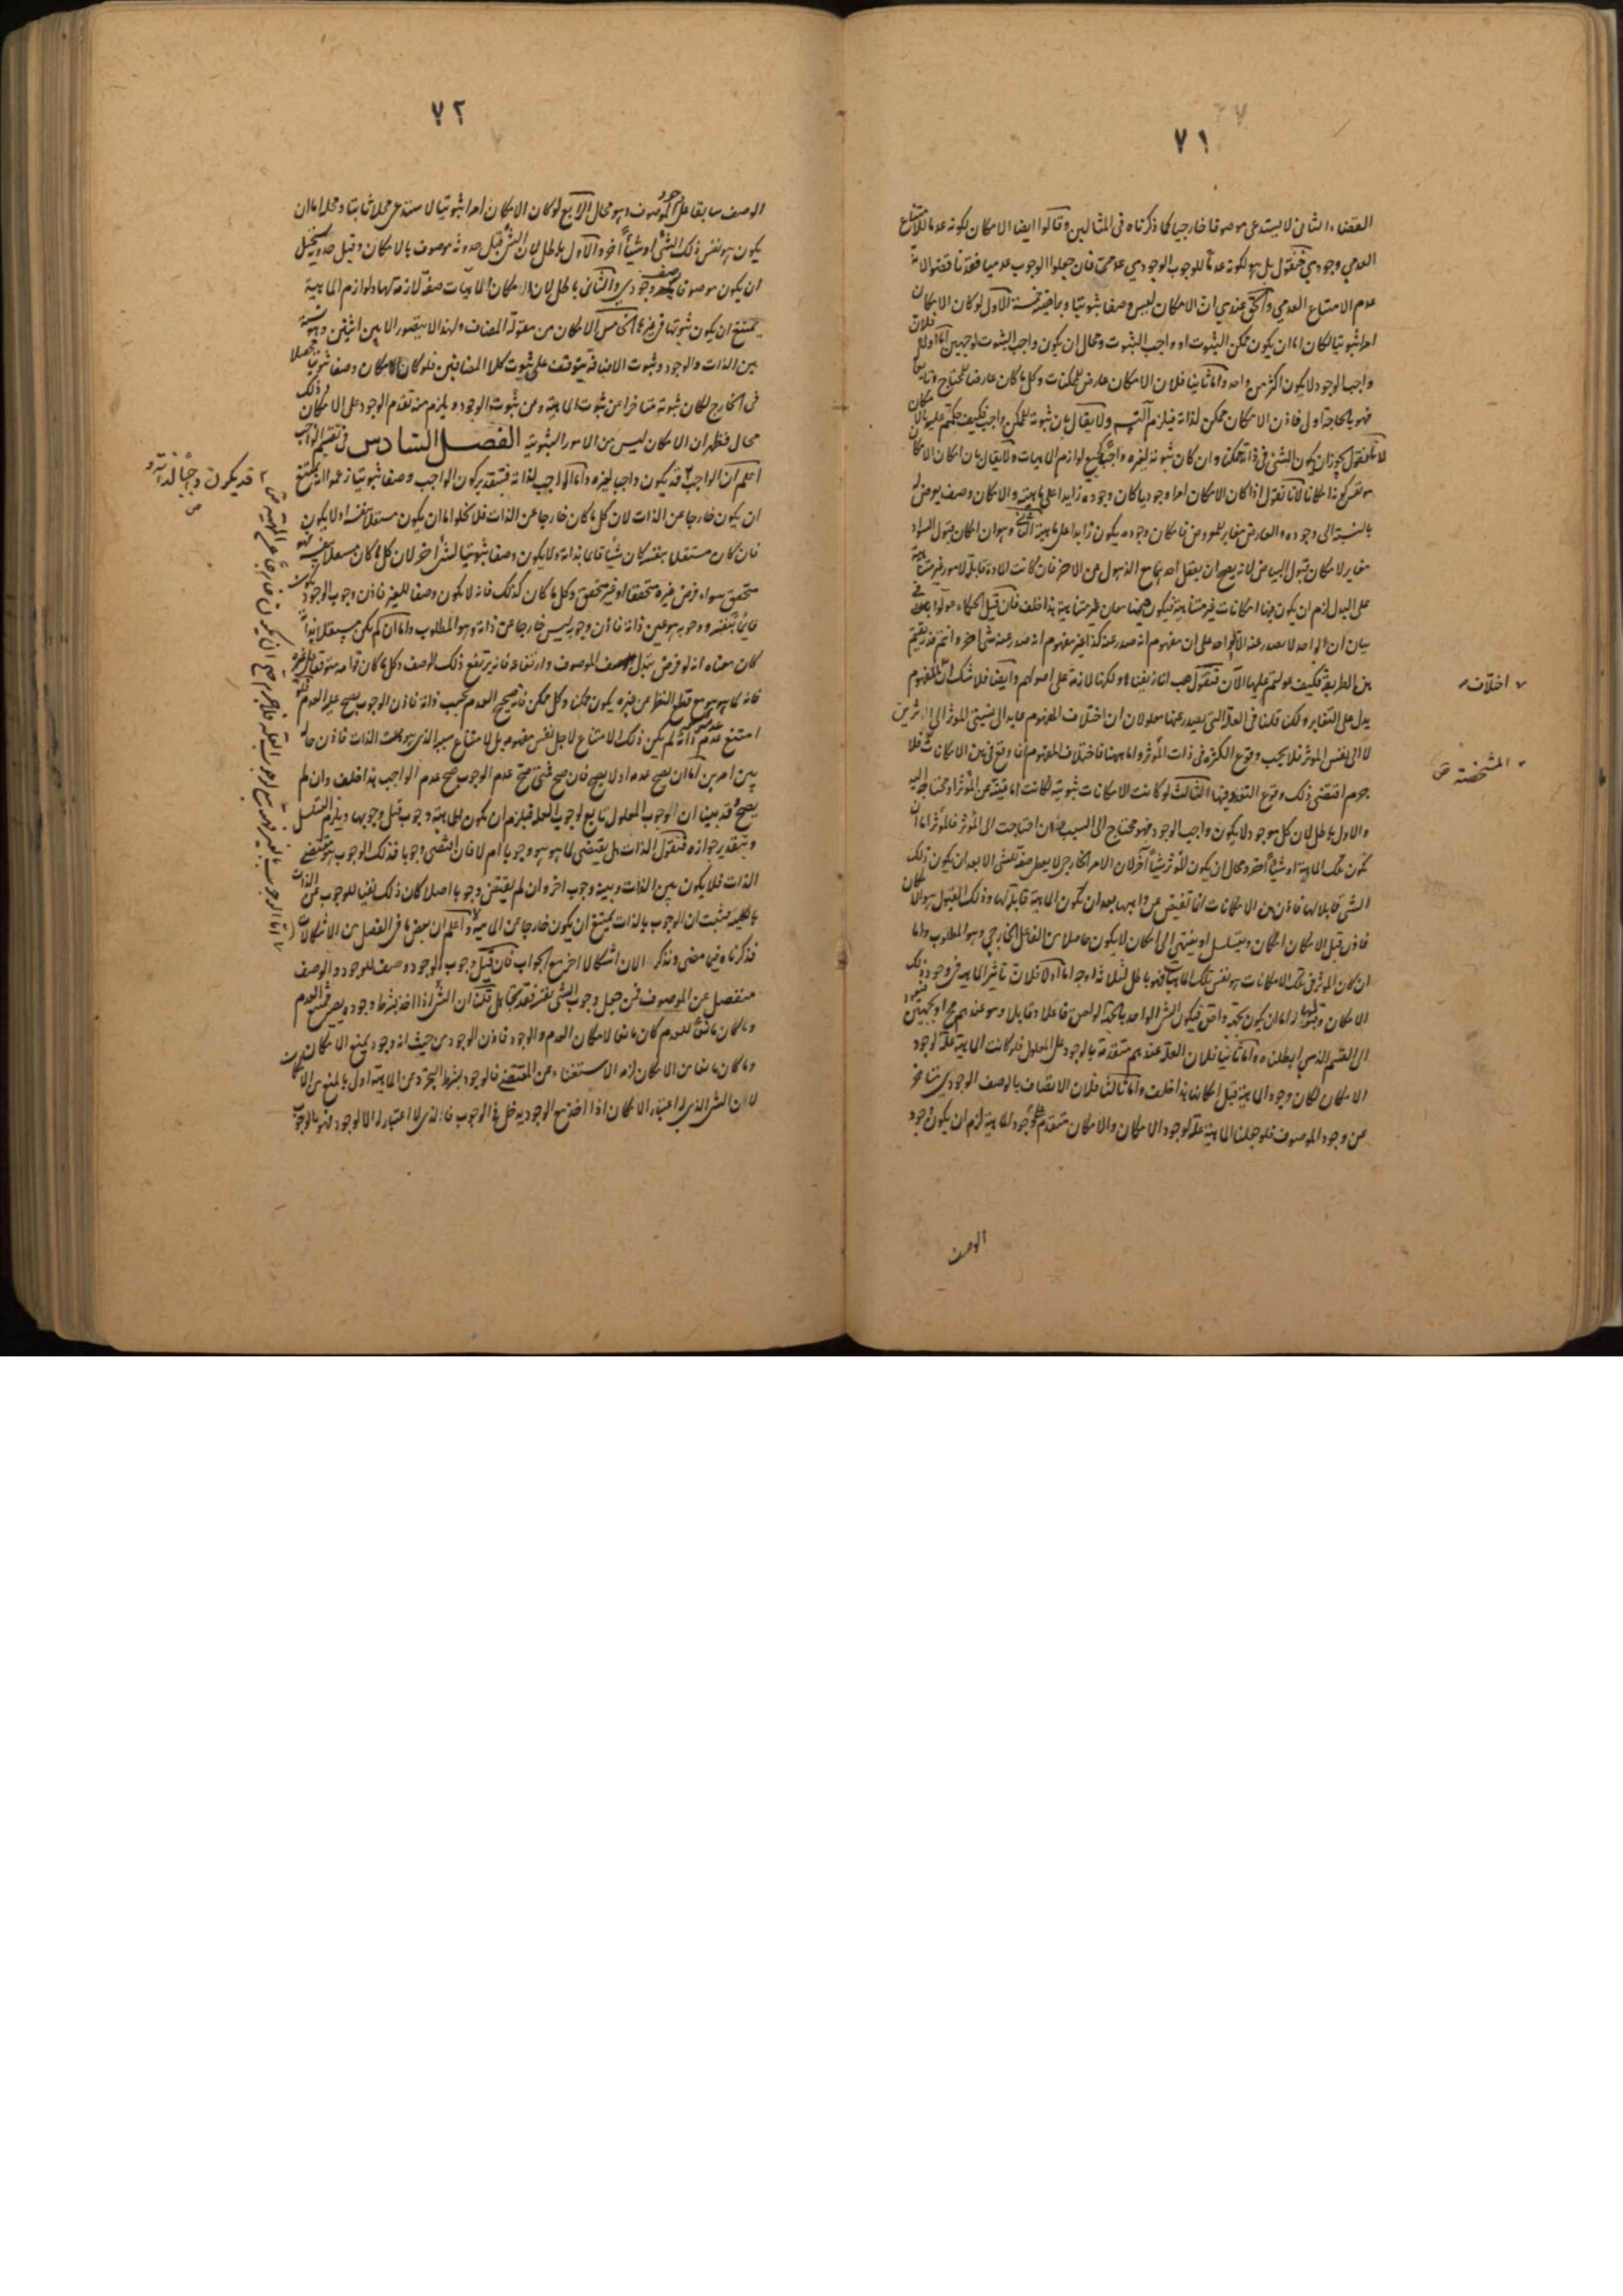 ٧١
القضاء الثانى لا يستدعى موصوفا خارجيا كما ذكرناه فى المثالين وقالوا ايضا الامكان لكونه عدما للامتناع
العدمى وجودى فنقول بل هو لكونه عدما للوجوب الوجودى عدمى فان جعلوا الوجوب عدميا فقد ناقضوا لانه
عدم الامتناع العدمى والحق عندى ان الامكان ليس وصفا ثبوتيا وبراهينه خمسة الاول لو كان الامكان
امرا ثبوتيا لكان اما ان يكون ممكن الثبوت او واجب الثبوت ومحال ان يكون واجب الثبوت لوجهين اما اولا فلان
واجب الوجود لا يكون اكثر من واحد واما ثانيا فلان الامكان عارض للممكنات وكل ما كان عارضا للمحتاج
فهو بالحاجة اولى فاذن الامكان ممكن لذاته فيلزم التسلسل ولا يقال بان ثبوته للممكن واجب فكيف حكمتم عليه بالامكان
لانا نقول يجوز ان يكون الشئ فى ذاته ممكنا وان كان ثبوته لغيره واجبا كجميع لوازم الماهيات ولا يقال بان امكان الامكان
هو نفس كونه امكانا لانا نقول اذا كان الامكان امرا وجوديا كان وجوده زايدا على ماهيته والامكان وصف يعرض له
بالنسبة الى وجوده والعارض مغاير للمعروض فامكان وجوده يكون زايدا على ماهيته الثانى وهو ان امكان قبول السواد
مغاير لامكان قبول البياض لانه يصح ان يعقل احدهما مع الذهول عن الاخر فان كانت المادة قابلة لامور غير متناهية
على البدل لزم ان يكون فيها امكانات غير متناهية فيكون هيهنا معان غير متناهية هذا خلف فان قيل الحكماء عولوا فى
بيان ان الواحد لا يصدر عنه الا الواحد على ان مفهوم انه صدر عنه كذا غير مفهوم انه صدر عنه شئ اخر وانتم قد زيفتم
هذه الطريقة فكيف عولتم عليها الآن فنقول هب انا زيفناها ولكنها لازمة على اصولهم وايضا فلا شك ان المفهوم
يدل على التغاير ولكن قلنا فى العلة التى يصدر عنها معلولان ان اختلاف المفهوم عايد الى نسبتى المؤثر الى الاثرين
لا الى نفس المؤثر فلا يجب وقوع الكثرة فى ذات المؤثر واما هيهنا فاختلاف المفهوم انما وقع فى نفس الامكانات فلا
جرم اقتضى ذلك وقوع التعدد فيها الثالث لو كانت الامكانات ثبوتية لكانت اما غنية عن المؤثر او محتاجة اليه
والاول باطل لان كل موجود لا يكون واجب الوجود فهو محتاج الى السبب وان احتاجت الى المؤثر فالمؤثر اما ان
تكون تلك الماهية او شيئا آخر ومحال ان يكون المؤثر شيئا آخر لان الامر الخارجى لا يعطى صفة للشئ الا بعد ان يكون ذلك
الشئ قابلا لها فاذن الامكانات انما تفيض عن واهبها بعد ان تكون الماهية قابلة لها وذلك القبول هو الامكان
فاذن قبل الامكان امكان ويتسلسل او ينتهى الى امكان لا يكون حاصلا من الفاعل الخارجى وهو المطلوب واما
ان كان المؤثر فى تلك الامكانات هو نفس تلك الماهيات فهو باطل لثلاثة اوجه اما اولا فلان تاثير الماهية فى وجود ذلك
الامكان وقبولها له اما ان يكون بجهة واحدة فيكون الشئ الواحد بالجهة الواحدة فاعلا وقابلا وهو عندهم محال او بجهتين فيعود
الى القسم الذى ابطلناه واما ثانيا فلان العلة عندهم متقدمة بالوجود على المعلول فلو كانت الماهية علة لوجود
الامكان لكان وجود الماهية قبل امكانها هذا خلف واما ثالثا فلان الاتصاف بالوصف الوجودى متاخر
عن وجود الموصوف فلو جعلنا الماهية علة لوجود الامكان والامكان متقدم على وجود الماهية لزم ان يكون وجود
الوصف
اختلاف
المشخصة
٧٢
الوصف سابقا على وجود الموصوف وهو محال الرابع لو كان الامكان امرا ثبوتيا لاستدعى محلا ثابتا ومحله اما ان
يكون هو نفس ذلك الشئ او شيئا آخر والاول باطل لان الشئ قبل حدوثه موصوف بالامكان وقبل حدوثه يستحيل
ان يكون موصوفا بوصف وجودى والثانى باطل لان امكان الماهيات صفة لازمة لها ولوازم الماهية
يمتنع ان يكون ثبوتها فى غيرها الخامس الامكان من مقولة المضاف ولهذا لا يتصور الا بين اثنين وهو نسبة
بين الذات والوجود وثبوت الاضافة يتوقف على ثبوت كلا المضافين فلو كان الامكان وصفا ثبوتيا محصلا
فى الخارج لكان ثبوته متاخرا عن ثبوت الماهية وعن ثبوت الوجود ويلزم منه تقدم الوجود على الامكان وذلك
محال فظهر ان الامكان ليس من الامور الثبوتية الفصل السادس فى تقسيم الواجب
اعلم ان الواجب قد يكون واجبا لغيره واما الواجب لذاته فبتقدير كون الواجب وصفا ثبوتيا زعموا انه يمتنع
ان يكون خارجا عن الذات لان كل ما كان خارجا عن الذات فلا يخلو اما ان يكون مستقلا بنفسه او لا يكون
فان كان مستقلا بنفسه كان شيئا قائما بذاته ولا يكون وصفا ثبوتيا لشئ اخر لان كل ما كان مستقلا بنفسه فهو
متحقق سواء فرض غيره متحققا او غير متحقق وكل ما كان كذلك فانه لا يكون وصفا للغير فاذن وجوب الوجود يكون
قائما بنفسه ووجوبه هو عين ذاته فاذن وجوبه ليس خارجا عن ذاته وهو المطلوب واما ان لم يكن مستقلا بذاته
كان معناه انه لو فرض تبدل الموصوف وارتفاعه فانه يرتفع ذلك الوصف وكل ما كان قوامه متوقفا على غيره
فانه كما هو هو مع قطع النظر عن غيره يكون ممكنا وكل ممكن فانه صحيح العدم بحسب ذاته فاذن الوجوب يصح عليه العدم فلو
امتنع عدمه لم يكن ذلك الامتناع لاجل نفس مفهومه بل لامتناع سببه الذى هو تلك الذات فاذن حاله
بين امرين اما ان يصح عدمه او لا يصح فان صح فمتى صح عدم الوجوب صح عدم الواجب هذا خلف وان لم
يصح وقد بينا ان وجوب المعلول تابع لوجوب العلة فيلزم ان يكون للماهية وجوب قبل وجوبها ويلزم التسلسل
وبتقدير جوازه فنقول الذات هل يقتضى لما هو هو وجوبا ام لا فان اقتضى وجوبا فذلك الوجوب هو مقتضى
الذات فلا يكون بين الذات وبينه وجوب اخر وان لم يقتض وجوبا اصلا كان ذلك نفيا للوجوب عن الذات
بالكلية فثبت ان الوجوب بالذات يمتنع ان يكون خارجا عن الماهية واعلم ان بعض ما فى الفصل من الاشكالات
قد ذكرناه فيما مضى ونذكر الان اشكالا اخر مع الجواب فان قيل وجوب الوجود وصف للوجود والوصف
منفصل عن الموصوف فمن جعل وجوب الشئ نفسه فقد تجاهل قلنا ان الشئ اذا اخذ بشرط وجوده يصير ممتنع العدم
وما كان مانعا للعدم كان مانعا لامكان العدم والوجود فاذن الوجود من حيث انه وجود يمنع الامكان
وما كان مانعا من الامكان لزمه الاستغناء عن المقتضى فالوجود بشرط التجرد عن الماهية اولى بالمنع من الامكان
لان الشئ الذى له اعتبار الامكان اذا اخذ مع الوجود يدخل فى الوجوب فالذى لا اعتبار له الا الوجود فهو بالوجوب
قد يكون واجبا لذاته و